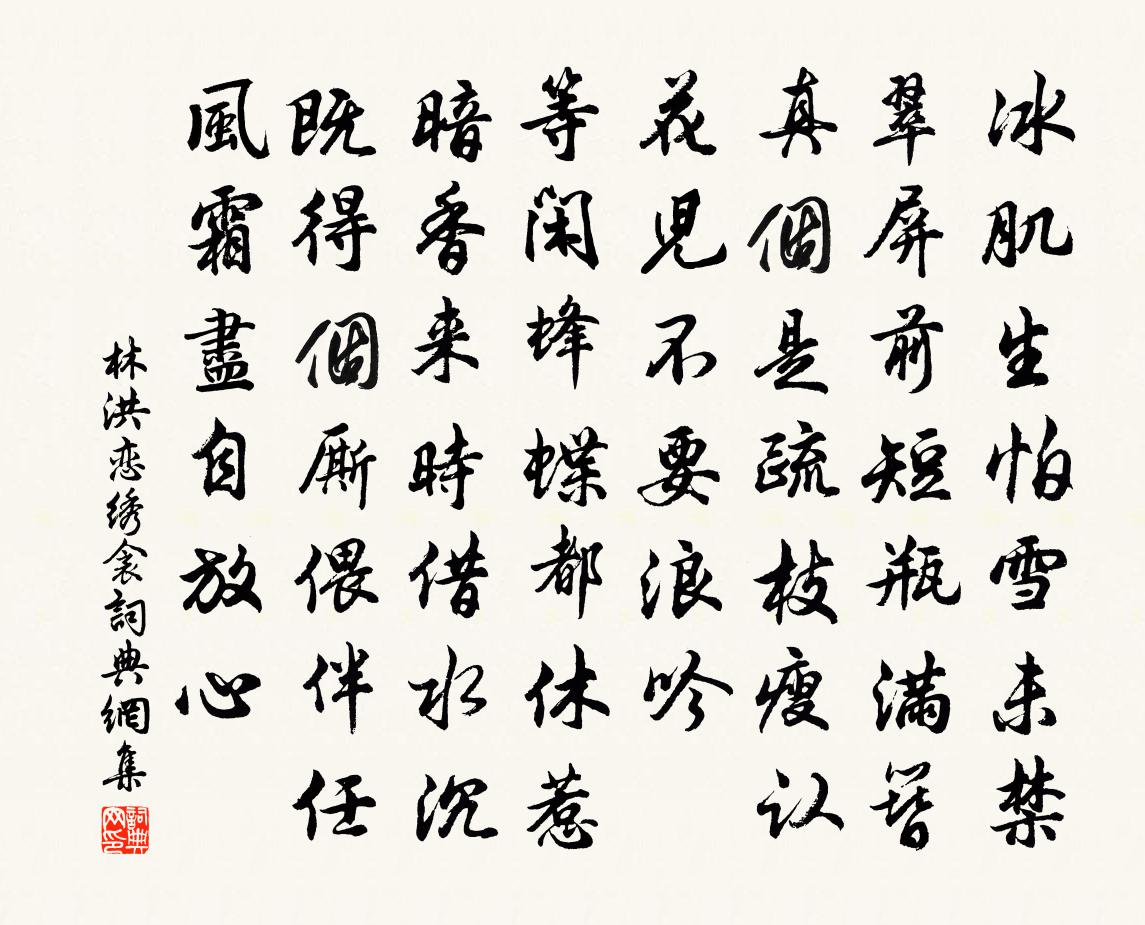 冰肌生怕雪未禁
翠屏前短瓶满簪
真個是疏枝瘦认
花児不要浪吟
等闲蜂蝶都休惹
暗香来時借水沉
既得個厮偎伴任
風霜盡自放心
林洪恋绣衾詞典網集
詞典网印